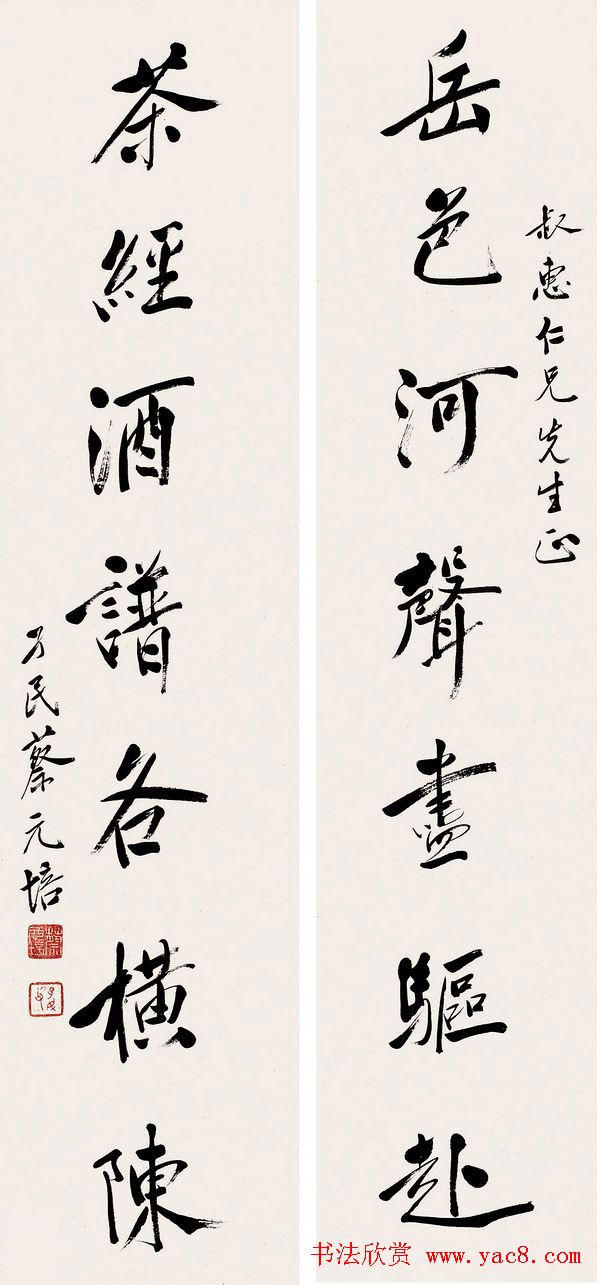 叔惠仁兄先生正
岳色河聲盡驅赴
茶經酒譜各橫陳
孑民蔡元培
书法欣赏 www.yac8.com